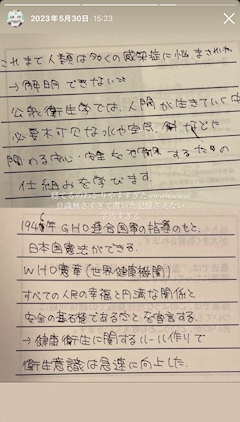 2023年5月30日 15:23
これまで人類は多くの感染症に悩まされた
→解明できない
公衆衛生学では、人間が生きていく中
必要不可欠な水や空気、食などに
関わる安心・安全を
仕組みを学びます。
1946年GHO連合国軍の指導のもと、
日本国憲法ができる。
WHO憲章(世界健康機関)
すべての人民の幸福と円満な関係と
安全の基石であることを宣言する。
→健康衛生に関するルール作りで
衛生意識は急速に向上した。